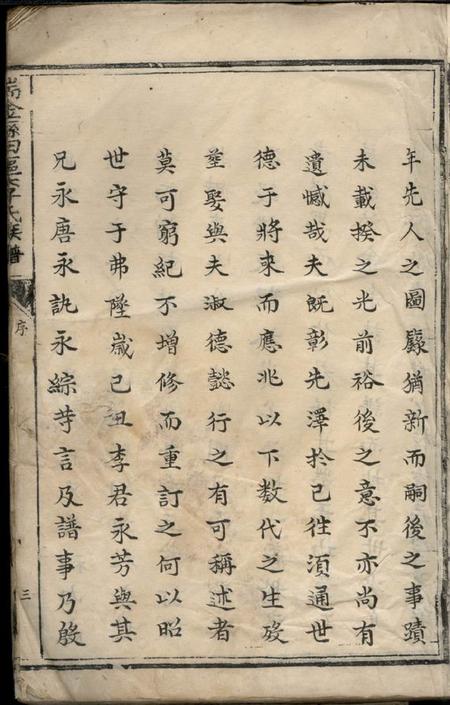 年先人之圖繇猶新而嗣後之事蹟
未載揆之光前裕後之意不亦尚有
遺憾哉夫既彰先澤於已往須通世
德于將來而應兆以下数代之生歿
塟娶與夫淑德懿行之有可稱述者
莫可窮紀不增修而重訂之何以昭
世守于弗墜歲己丑李君永芳與其
兄永唐永訊永綜䒭言及譜事乃殷
瑞金縣田邊李氏族譜
序
三